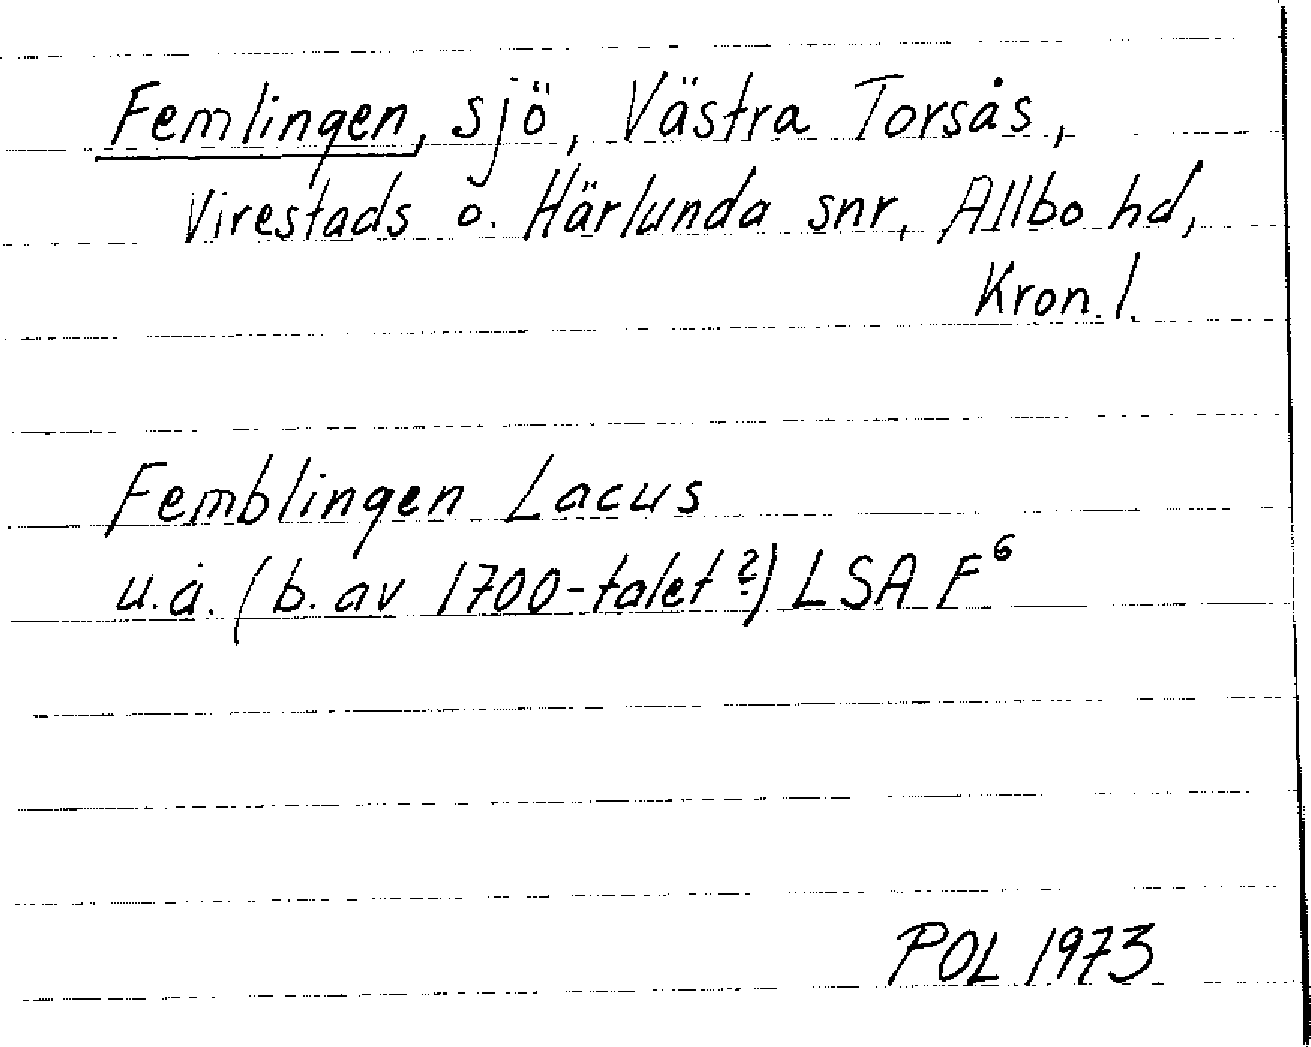 Femlingen, sjö, Västra Torsås,
Virestads o. Härlunda snr, Allbo hd,
Kron. l.
Femblingen Lacus
u.å. (b. av 1700-talet?) LSA F⁶
POL 1973